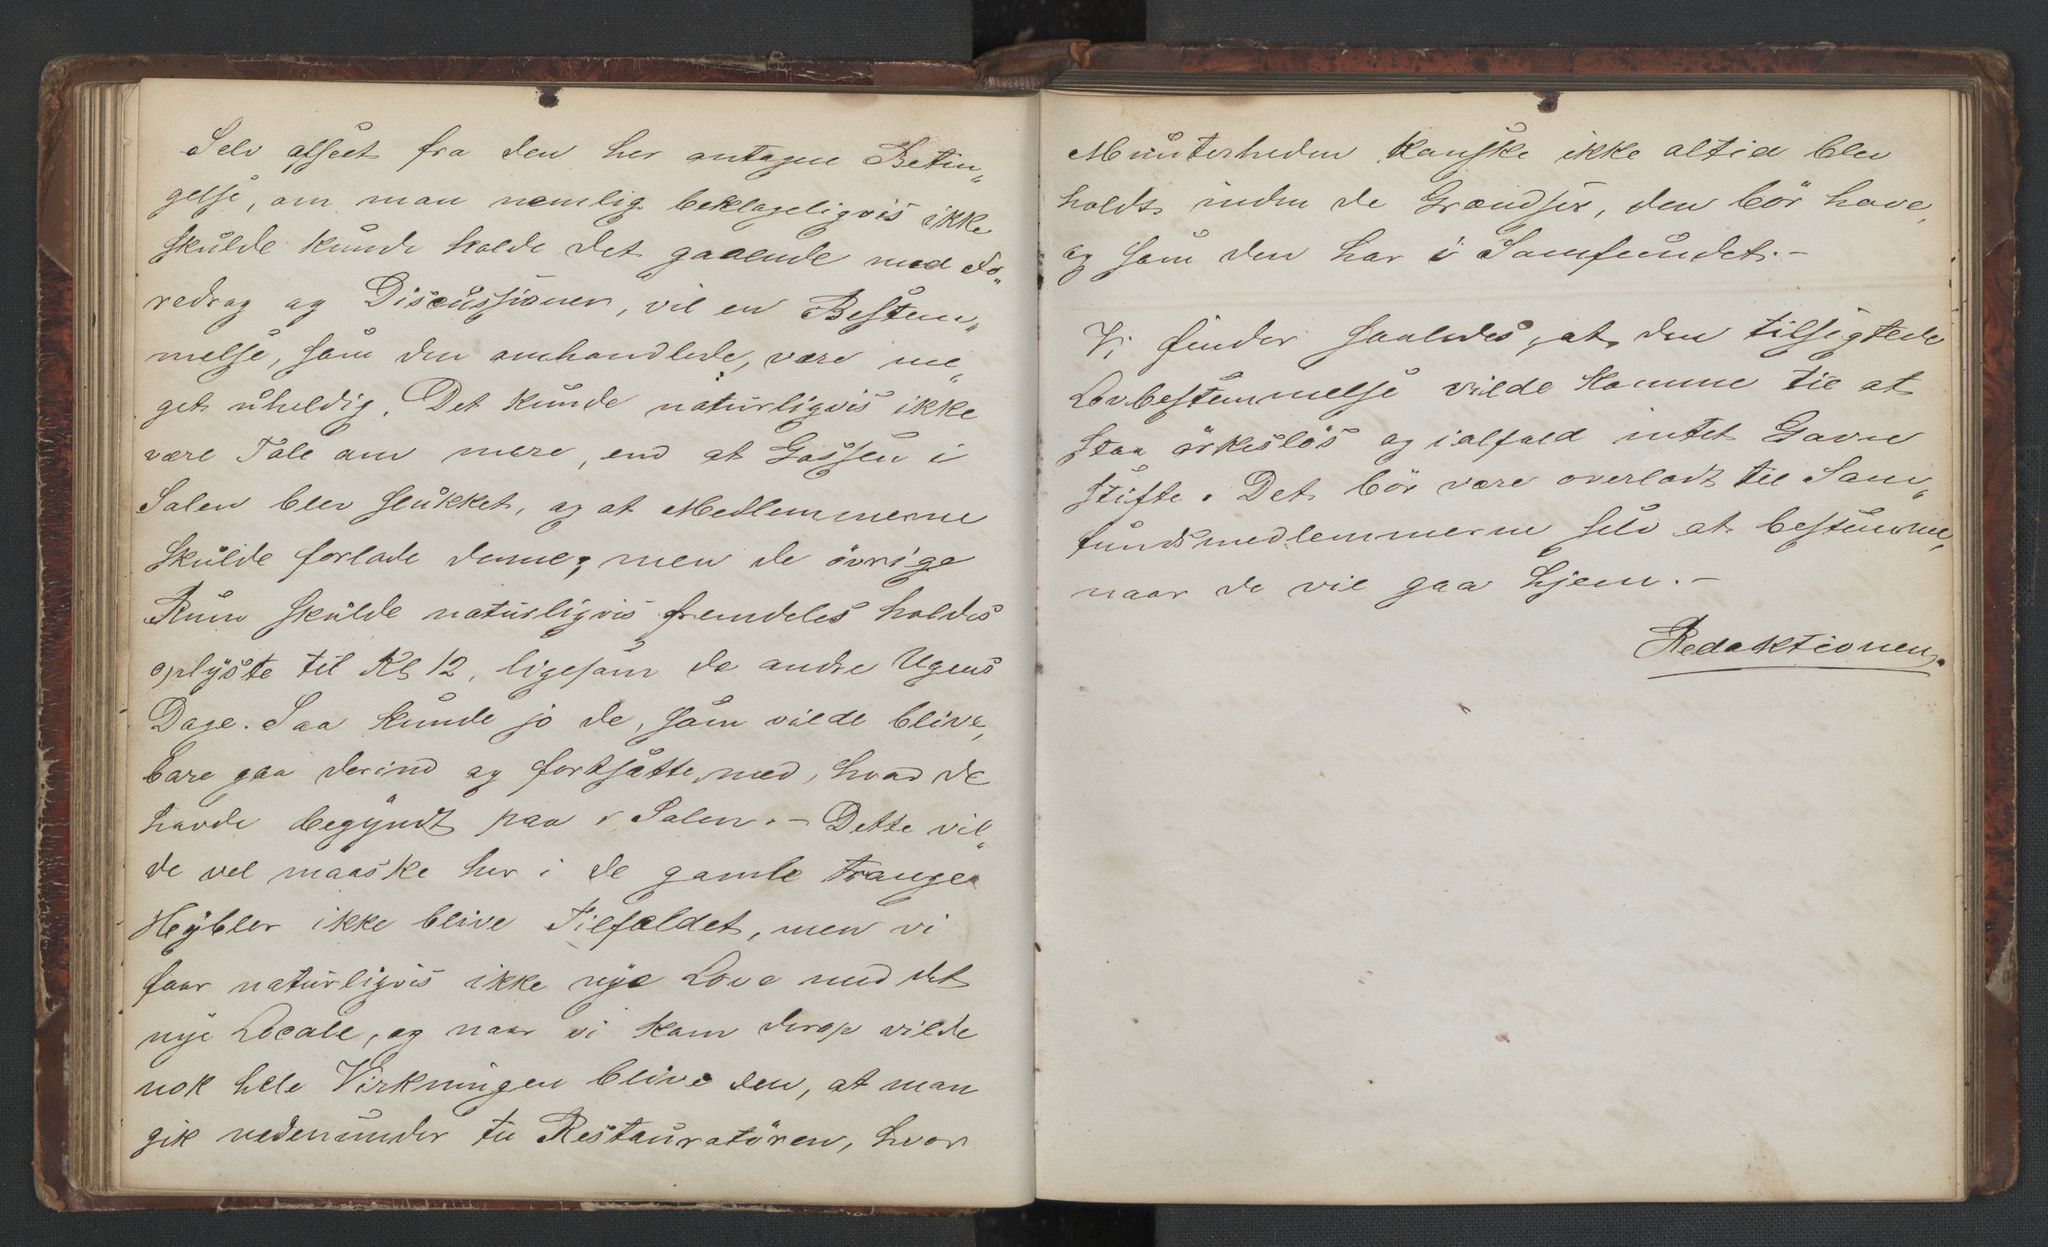 Selv afseet fra den her antagne Betin„
gelse, om man nemlig beklageligvis ikke
skulde kunde holde det gaaende med Fo„
redrag og Discussioner, vil en Bestem„
melse, som den omhandlede, være me„
get uheldig. Det kunde naturligvis ikke
være Tale om mere, end at Gassen i
Salen blev slukket, og at Medlemmerne
skulde forlade denne; men de övrige
Rum skulde naturligvis fremdeles holdes
oplyste til Kl 12, ligesom de andre Ugens
Dage. Saa kunde jo de, som vilde blive,
bare gaa derind og fortsætte med, hvad de
havde begyndt paa i Salen. – Dette vil„
de vel maaske her i de gamle trange
Hybler ikke blive Tilfældet, men vi
faar naturligvis ikke nye Love med det
nye Locale, og naar vi kom derop vilde
nok hele Virkningen blive den, at man
gik nedenunder til Restauratören, hvor
Munterheden kanske ikke altid blev
holdt inden de Grændser, den bör have,
og som den har i Samfundet. –
Vi finder saaledes, at den tilsigtede
Lovbestemmelse vilde komme til at
staa örkeslös og ialfald intet Gavn
stifte. Det bör være overladt til Sam„
fundsmedlemmerne selv at bestemme,
naar de vil gaa hjem. –
Redaktionen.